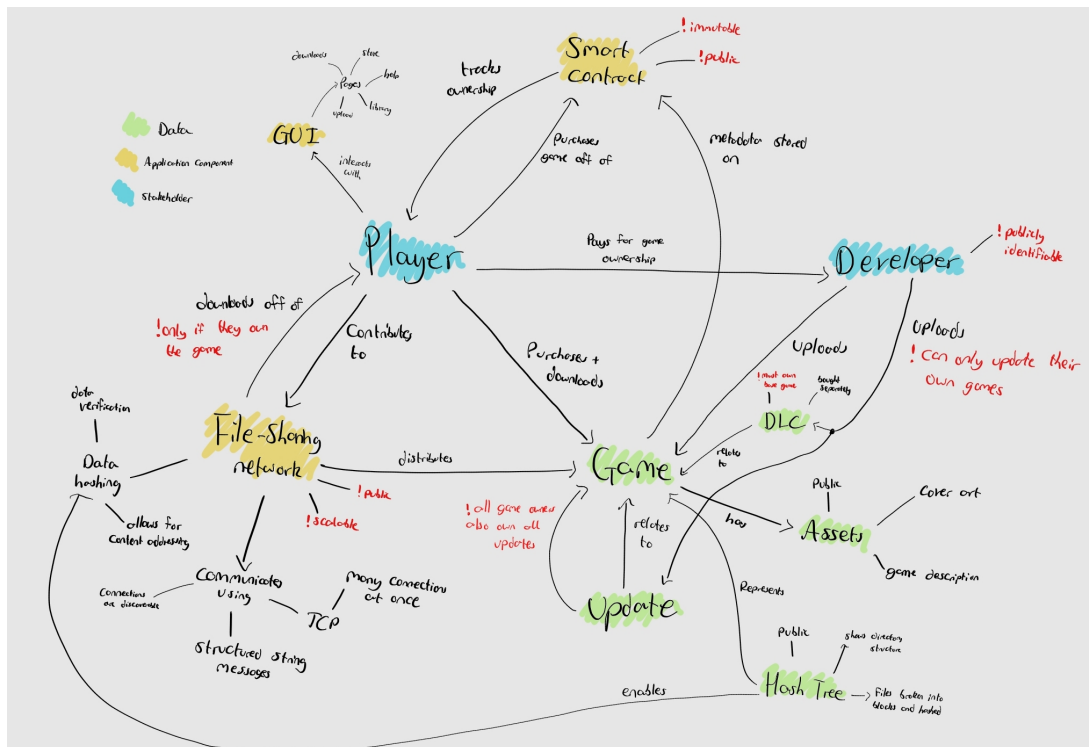 Smart
contract
! immutable
! public
downloads
store
Pages
help
upload
library
GUI
interacts
with
tracks
ownership
Purchases
game off of
metadata stored
on
Data
Application Component
Stakeholder
Player
Pays for game
ownership
Developer
! publicly
identifiable
downloads off of
! only if they own
the game
Contributes
to
Purchases +
downloads
uploads
uploads
! Can only update their
own games
! must own
base game
bought
separately
DLC
relates
to
data
verification
Data
hashing
allows for
Content addressing
File-sharing
network
distributes
! public
! scalable
Game
! all game owners
also own all
updates
relates
to
has
Public
Assets
Cover art
game description
Communicates
using
Connections
are discoverable
TCP
many connections
at once
structured string
messages
Update
Represents
Public
shows directory
structure
Hash Tree
Files broken into
blocks and hashed
enables